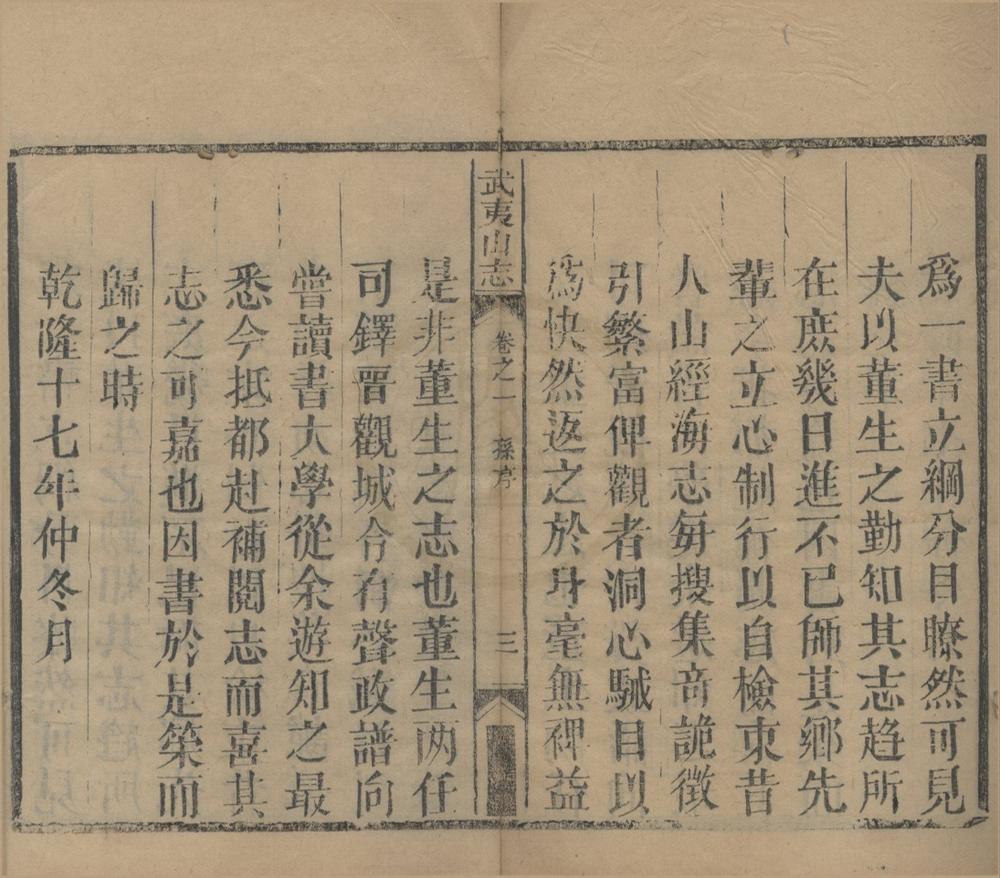 爲一書立綱分目瞭然可見
夫以董生之勤知其志趋所
在庶幾日進不已師其鄉先
輩之立心制行以自檢束昔
人山經海志每搜集竒詭徵
引繁富俾觀者洞心駴目以
爲快然返之於身毫無裨益
武夷山志
卷之一 孫序
三
是非董生之志也董生两任
司鐸晋觀城令有聲政譜向
嘗讀書大學從余遊知之最
悉今抵都赴補閱志而喜其
志之可嘉也因書於是䇿而
歸之時
乾隆十七年仲冬月